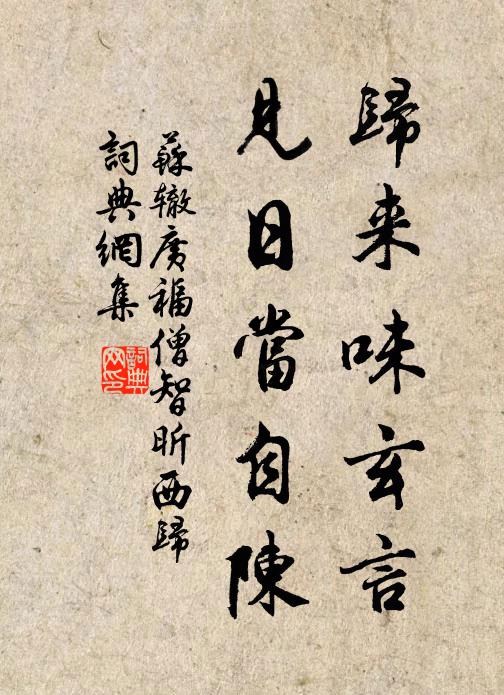 歸来味玄言
見日當自陳
蘇辙廣福僧智昕西歸
詞典網集
詞典網印